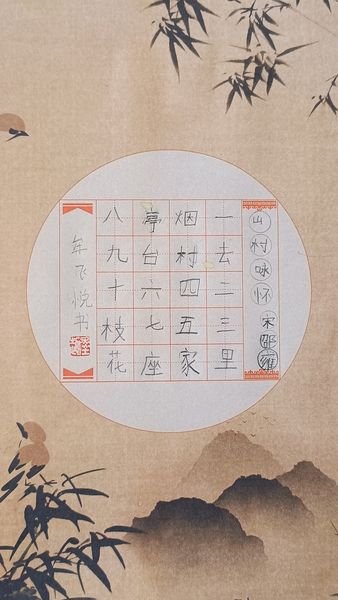 山村咏怀
宋 邵雍
一去二三里
烟村四五家
亭台六七座
八九十枝花
年飞悦书